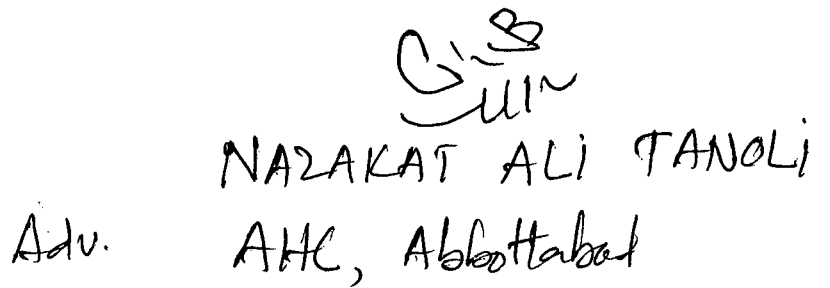 NAZAKAT ALI TANOLI
Adv. AHC, Abbottabad